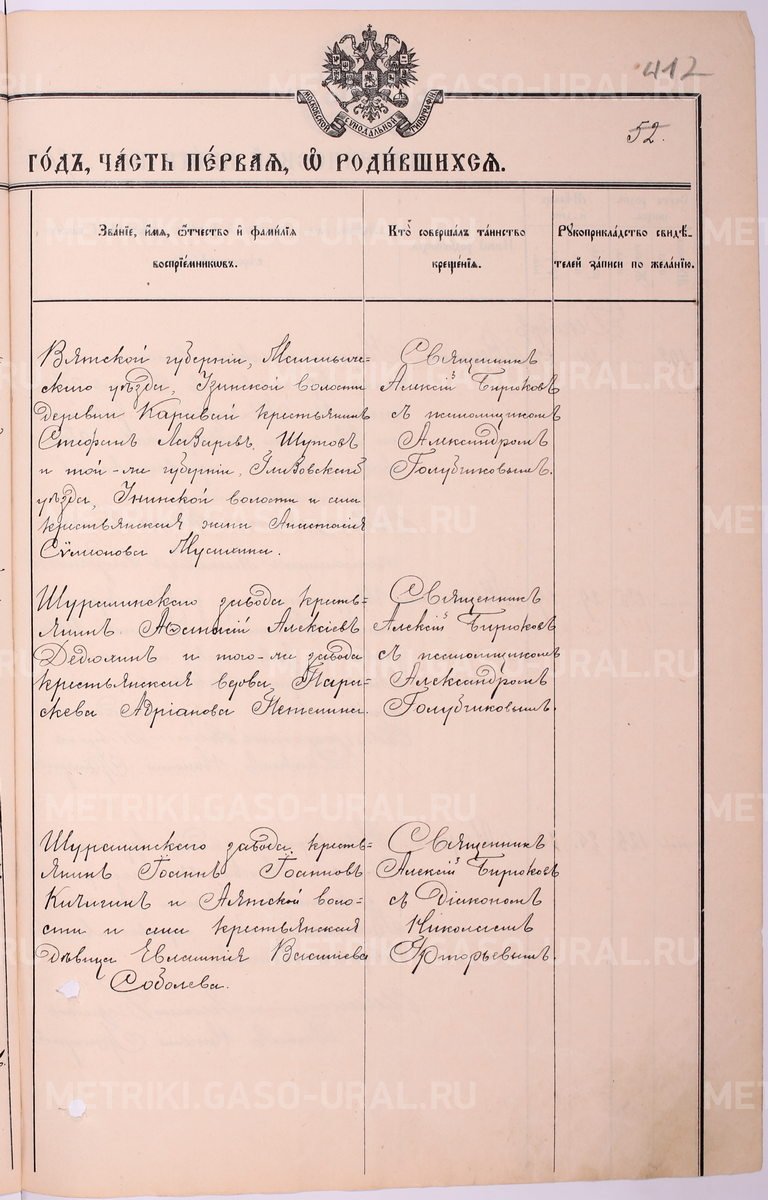 412
МОСКОВСКОЙ СѴНОДАЛЬНОЙ ТИПОГРАФІИ
52.
ГО́ДЪ, ЧА́СТЬ ПЕ́РВАѦ, Ѽ РОДИ́ВШИХСѦ.
Зва́нїе, и́мѧ, ѻ́тчество и҆ фами́лїѧ
воспрїе́мниковъ.
Кто̀ соверша́лъ та́инство
креще́нїѧ.
Рꙋкоприкла́дство свидѣ́-
телей за́писи по жела́нїю.
Вятской губерніи,
скаго уѣзда, волости
деревни крестьянинъ
Стефанъ Лазаревъ Шутовъ
и той-же губерніи, Глазовскаго
уѣзда, волости и села
крестьянская жена Анастасія
Сѵмеонова
Священникъ
Алексій Бирюковъ
съ псаломщикомъ
Александромъ
Голубчиковымъ.
Шуралинскаго завода кресть-
янинъ Алексіевъ
Дедюхинъ и того-же завода
крестьянская вдова Пара-
скева Адріанова
Священникъ
Алексій Бирюковъ
съ псаломщикомъ
Александромъ
Голубчиковымъ.
Шуралинскаго завода кресть-
янинъ Іоаннъ Іоанновъ
Кичигинъ и Аятской воло-
сти и села крестьянская
дѣвица Евлампія Васильева
Соболева.
Священникъ
Алексій Бирюковъ
съ Діакономъ
Николаемъ
Григорьевымъ.
METRIKI.GASO-URAL.RU